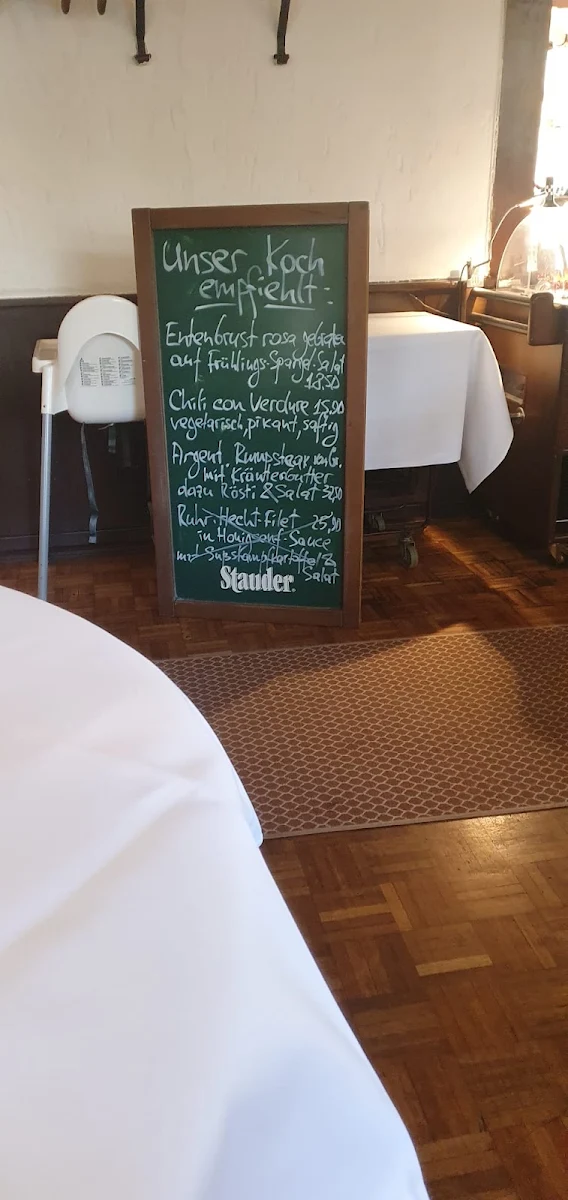 Unser Koch
empfiehlt:
Entenbrust rosa gebraten
auf Frühlings-Spargel-Salat
18,50
Chili con Verdure 15,90
vegetarisch, pikant, saftig
Argent. Rumpsteak vom Gr.
mit Kräuterbutter
dazu Rösti & Salat 32,50
Ruhr-Hecht-Filet 25,90
in Honigsenf-Sauce
mit Süsskartoffel &
Salat
Stauder